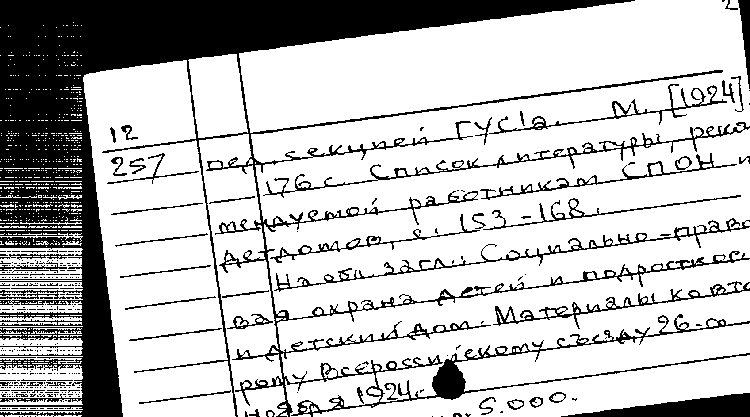 2
12
257 пед. секцией ГУСʼа. М., [1924].
176 с. Список литературы, реко-
мендуемой работникам СПОН и
детдомов, с. 153-168.
На обл. загл.: Социально-право-
вая охрана детей и подростков
и детский дом. Материалы ко вто-
рому Всероссийскому съезду 26-го
ноября 1924 г.
5.000.